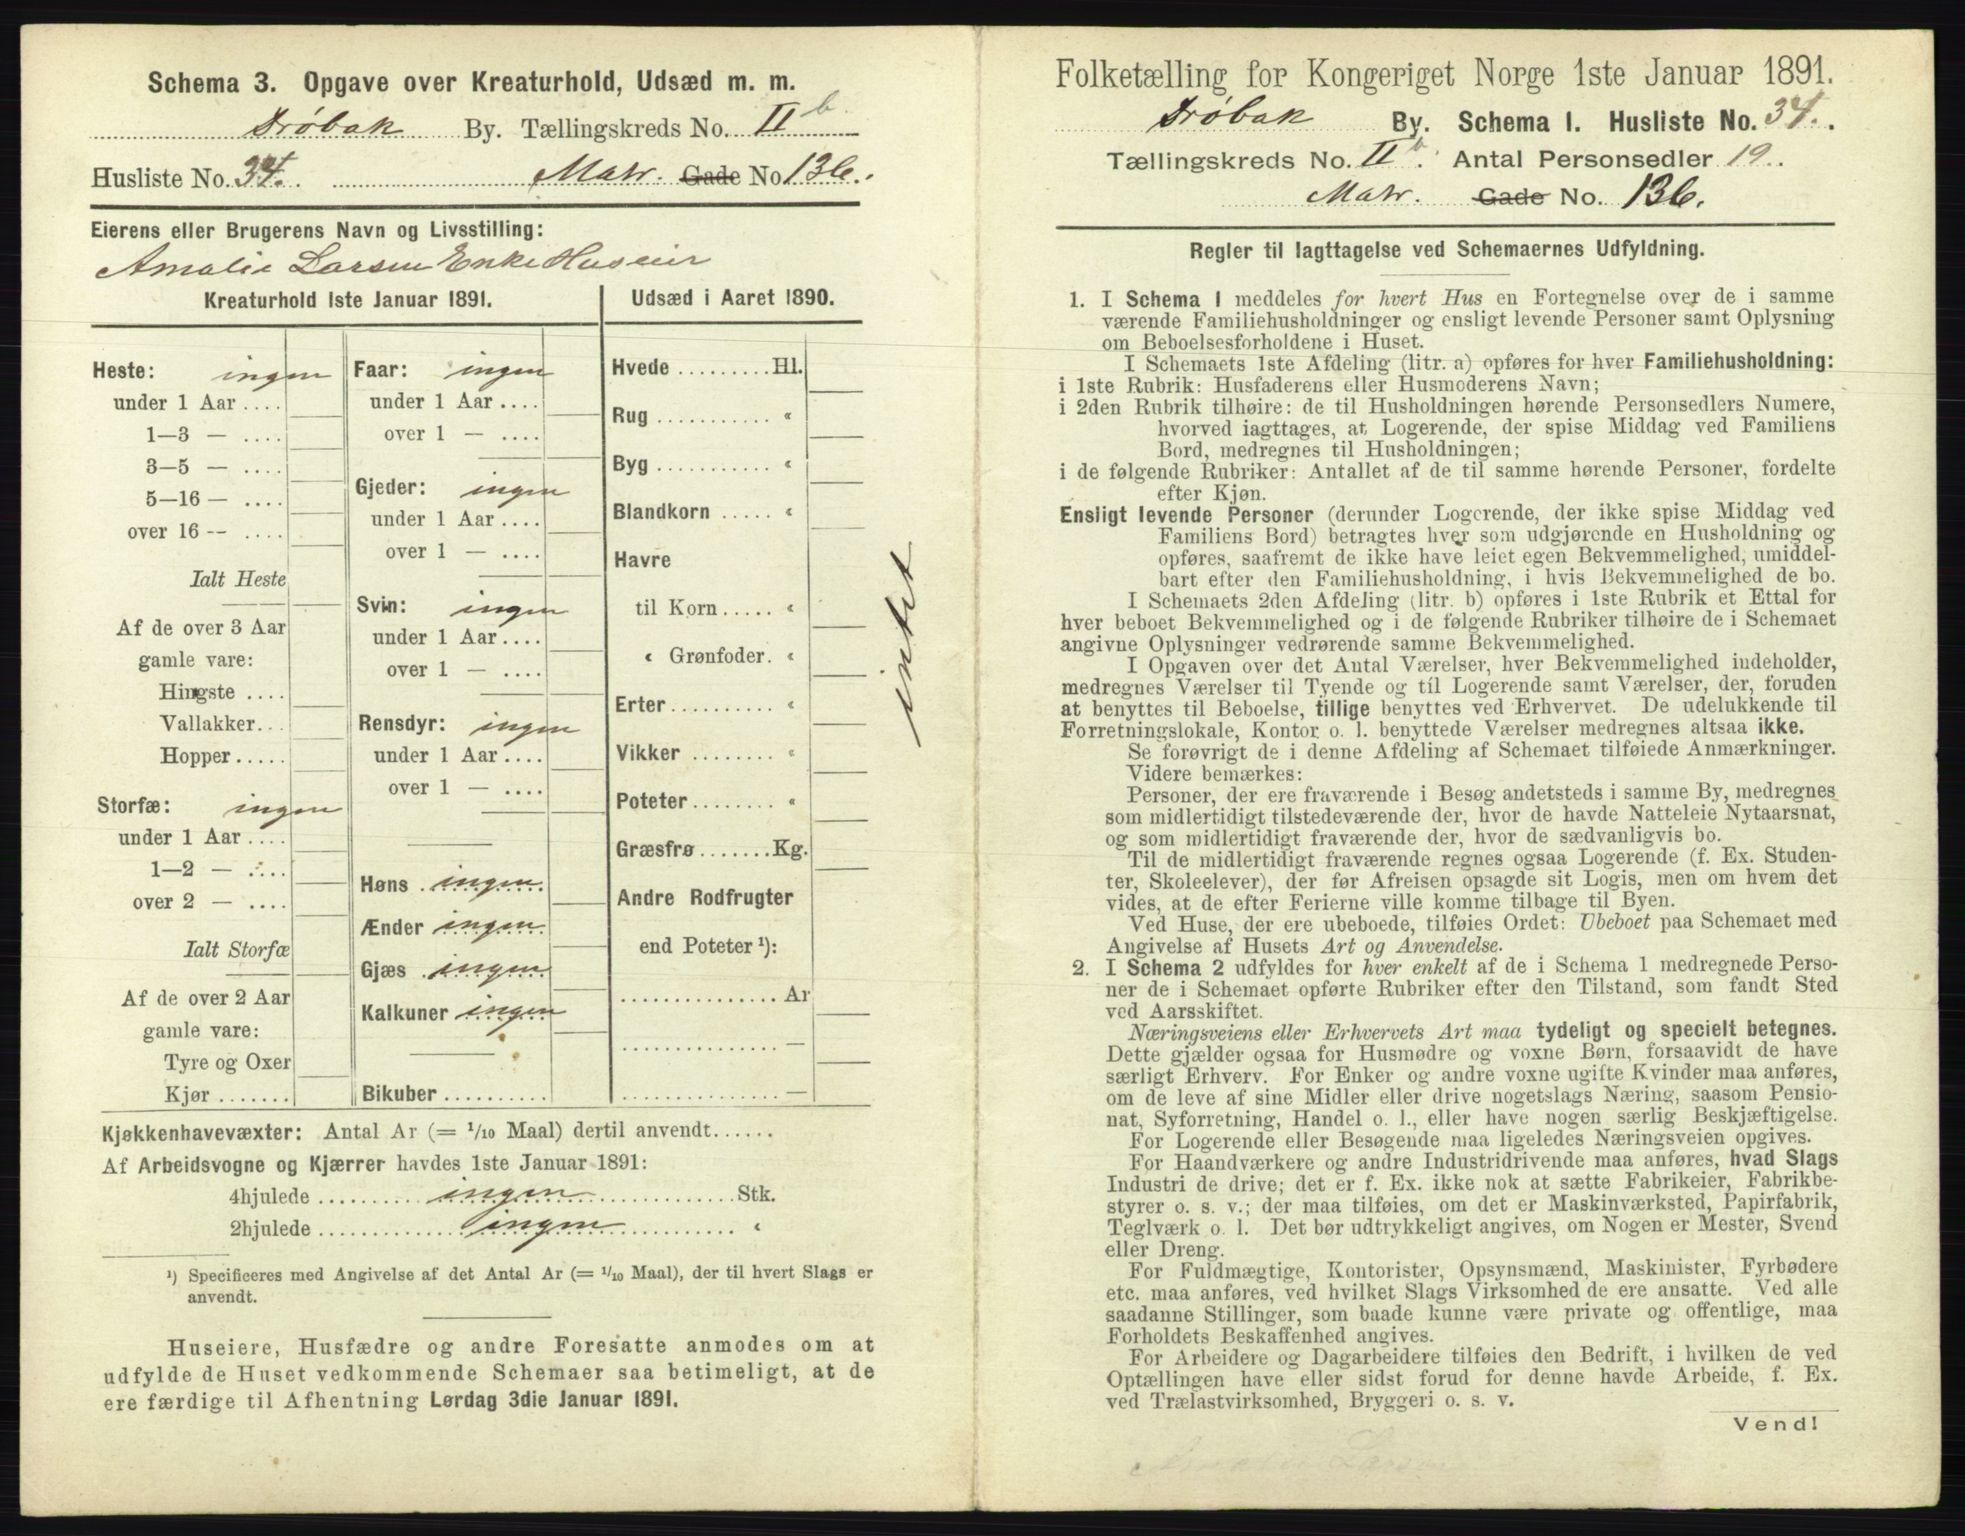 Schema 3. Opgave over Kreaturhold, Udsæd m. m.
Drøbak By. Tællingskreds No. II b
Husliste No. 34. Matr. Gade No 136.
Eierens eller Brugerens Navn og Livsstilling:
Amalie Larsen Enke Huseier
Kreaturhold 1ste Januar 1891.
Heste: ingen
under 1 Aar ....
1—3 — ....
3—5 — ....
5—16 — ....
over 16 -- ....
Ialt Heste
Af de over 3 Aar
gamle vare:
Hingste ....
Vallakker...
Hopper.....
Storfæ: ingen
under 1 Aar ....
1—2 — ....
over 2 — ....
Ialt Storfæ
Af de over 2 Aar
gamle vare:
Tyre og Oxer
Kjør .......
Faar: ingen
under 1 Aar ....
over 1 — ....
Gjeder: ingen
under 1 Aar ....
over 1 — ....
Svin: ingen
under 1 Aar ....
over 1 — ....
Rensdyr: ingen
under 1 Aar ....
over 1 — ....
Høns . ingen
Ænder ingen
Gjæs . ingen
Kalkuner ingen
Bikuber ..........
Udsæd i Aaret 1890.
Hvede .........Hl.
Rug ........... «
Byg ........... «
Blandkorn ..... «
Havre
til Korn ..... «
« Grønfoder. «
Erter.......... «
Vikker ........ «
Poteter........ «
Græsfrø.......Kg.
Andre Rodfrugter
end Poteter ¹):
................Ar
................—
................—
intet
Kjøkkenhavevæxter: Antal Ar (= 1/10 Maal) dertil anvendt......
Af Arbeidsvogne og Kjærrer havdes 1ste Januar 1891:
4hjulede ........ ingen ........Stk.
2hjulede ........ ingen ........ «
¹) Specificeres med Angivelse af det Antal Ar (= 1/10 Maal), der til hvert Slags er
anvendt.
Huseiere, Husfædre og andre Foresatte anmodes om at
udfylde de Huset vedkommende Schemaer saa betimeligt, at de
ere færdige til Afhentning Lørdag 3die Januar 1891.
Folketælling for Kongeriget Norge 1ste Januar 1891.
Drøbak By. Schema I. Husliste No. 34.
Tællingskreds No. II b. Antal Personsedler 19.
Matr. Gade No. 136.
Regler til Iagttagelse ved Schemaernes Udfyldning.
1. I Schema I meddeles for hvert Hus en Fortegnelse over de i samme
værende Familiehusholdninger og ensligt levende Personer samt Oplysning
om Beboelsesforholdene i Huset.
I Schemaets 1ste Afdeling (litr. a) opføres for hver Familiehusholdning:
i 1ste Rubrik: Husfaderens eller Husmoderens Navn;
i 2den Rubrik tilhøire: de til Husholdningen hørende Personsedlers Numere,
hvorved iagttages, at Logerende, der spise Middag ved Familiens
Bord, medregnes til Husholdningen;
i de følgende Rubriker: Antallet af de til samme hørende Personer, fordelte
efter Kjøn.
Ensligt levende Personer (derunder Logerende, der ikke spise Middag ved
Familiens Bord) betragtes hver som udgjørende en Husholdning og
opføres, saafremt de ikke have leiet egen Bekvemmelighed, umiddel-
bart efter den Familiehusholdning, i hvis Bekvemmelighed de bo.
I Schemaets 2den Afdeling (litr. b) opføres i 1ste Rubrik et Ettal for
hver beboet Bekvemmelighed og i de følgende Rubriker tilhøire de i Schemaet
angivne Oplysninger vedrørende samme Bekvemmelighed.
I Opgaven over det Antal Værelser, hver Bekvemmelighed indeholder,
medregnes Værelser til Tyende og til Logerende samt Værelser, der, foruden
at benyttes til Beboelse, tillige benyttes ved Erhvervet. De udelukkende til
Forretningslokale, Kontor o. l. benyttede Værelser medregnes altsaa ikke.
Se forøvrigt de i denne Afdeling af Schemaet tilføiede Anmærkninger.
Videre bemærkes:
Personer, der ere fraværende i Besøg andetsteds i samme By, medregnes
som midlertidigt tilstedeværende der, hvor de havde Natteleie Nytaarsnat,
og som midlertidigt fraværende der, hvor de sædvanligvis bo.
Til de midlertidigt fraværende regnes ogsaa Logerende (f. Ex. Studen-
ter, Skoleelever), der før Afreisen opsagde sit Logis, men om hvem det
vides, at de efter Ferierne ville komme tilbage til Byen.
Ved Huse, der ere ubeboede, tilføies Ordet: Ubeboet paa Schemaet med
Angivelse af Husets Art og Anvendelse.
2. I Schema 2 udfyldes for hver enkelt af de i Schema 1 medregnede Perso-
ner de i Schemaet opførte Rubriker efter den Tilstand, som fandt Sted
ved Aarsskiftet.
Næringsveiens eller Erhvervets Art maa tydeligt og specielt betegnes.
Dette gjælder ogsaa for Husmødre og voxne Børn, forsaavidt de have
særligt Erhverv. For Enker og andre voxne ugifte Kvinder maa anføres,
om de leve af sine Midler eller drive nogetslags Næring, saasom Pensio-
nat, Syforretning, Handel o. l., eller have nogen særlig Beskjæftigelse.
For Logerende eller Besøgende maa ligeledes Næringsveien opgives.
For Haandværkere og andre Industridrivende maa anføres, hvad Slags
Industri de drive; det er f. Ex. ikke nok at sætte Fabrikeier, Fabrikbe-
styrer o. s. v.; der maa tilføies, om det er Maskinværksted, Papirfabrik,
Teglværk o. l. Det bør udtrykkeligt angives, om Nogen er Mester, Svend
eller Dreng.
For Fuldmægtige, Kontorister, Opsynsmænd, Maskinister, Fyrbødere
etc. maa anføres, ved hvilket Slags Virksomhed de ere ansatte. Ved alle
saadanne Stillinger, som baade kunne være private og offentlige, maa
Forholdets Beskaffenhed angives.
For Arbeidere og Dagarbeidere tilføies den Bedrift, i hvilken de ved
Optællingen have eller sidst forud for denne havde Arbeide, f. Ex.
ved Trælastvirksomhed, Bryggeri o. s. v.
Vend!
Amalie Larsen